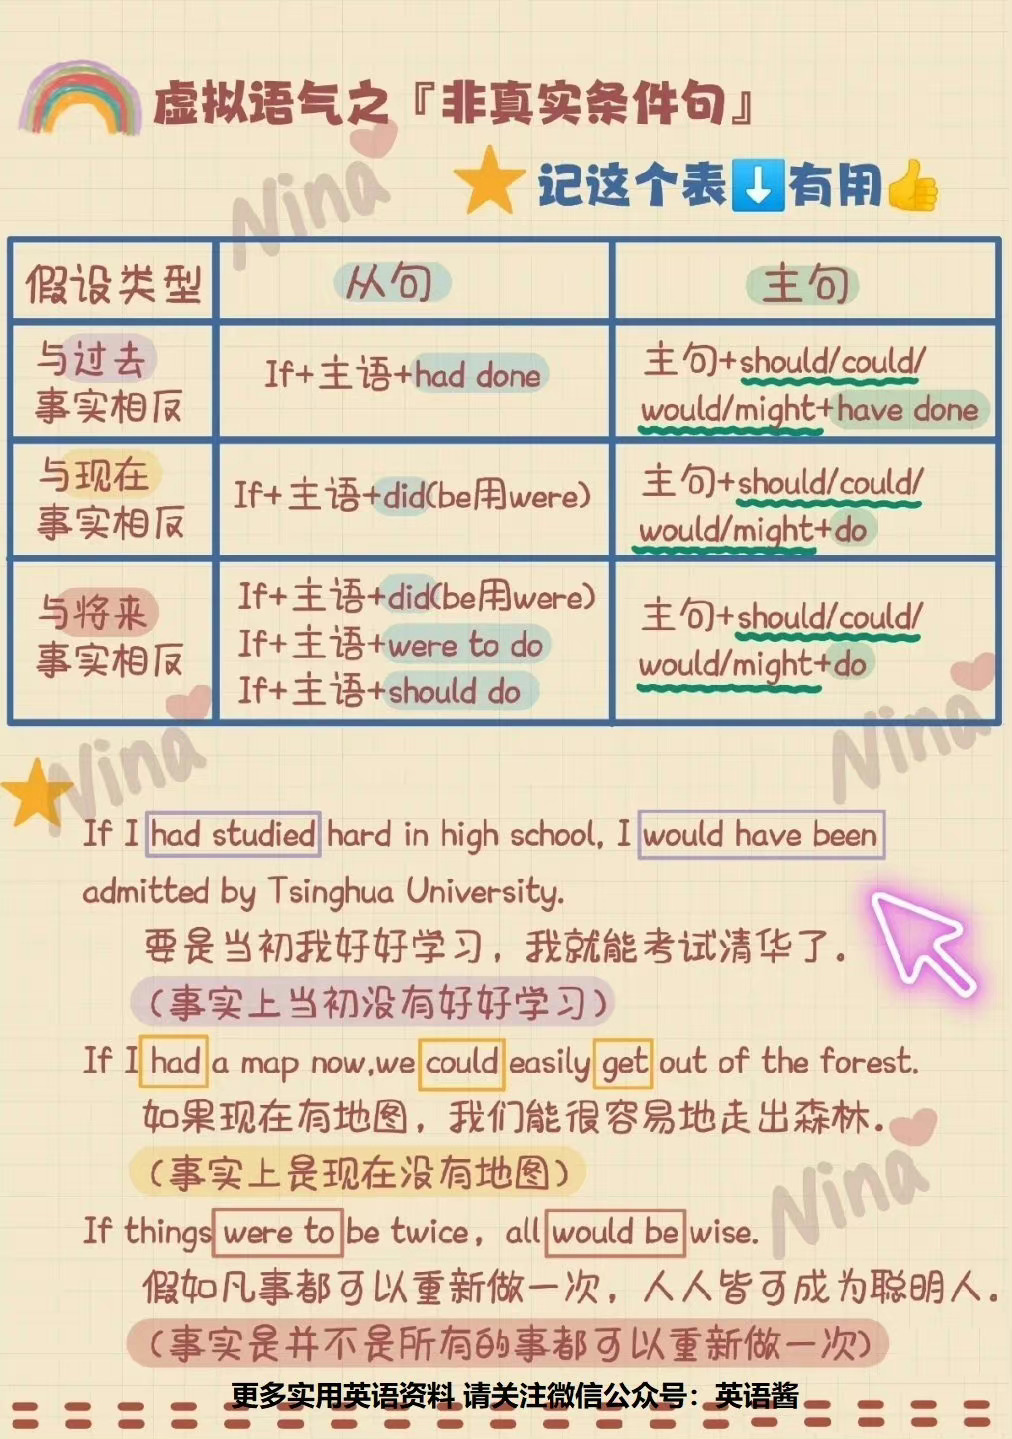 虚拟语气之『非真实条件句』
记这个表⬇️有用👍
假设类型 从句 主句
与过去
事实相反
If+主语+had done
主句+should/could/
would/might+have done
与现在
事实相反
If+主语+did(be用were)
主句+should/could/
would/might+do
与将来
事实相反
If+主语+did(be用were)
If+主语+were to do
If+主语+should do
主句+should/could/
would/might+do
If I had studied hard in high school, I would have been
admitted by Tsinghua University.
要是当初我好好学习，我就能考试清华了.
(事实上当初没有好好学习)
If I had a map now,we could easily get out of the forest.
如果现在有地图，我们能很容易地走出森林.
(事实上是现在没有地图)
If things were to be twice, all would be wise.
假如凡事都可以重新做一次，人人皆可成为聪明人.
(事实是并不是所有的事都可以重新做一次)
更多实用英语资料 请关注微信公众号：英语酱
Nina
Nina
Nina
Nina